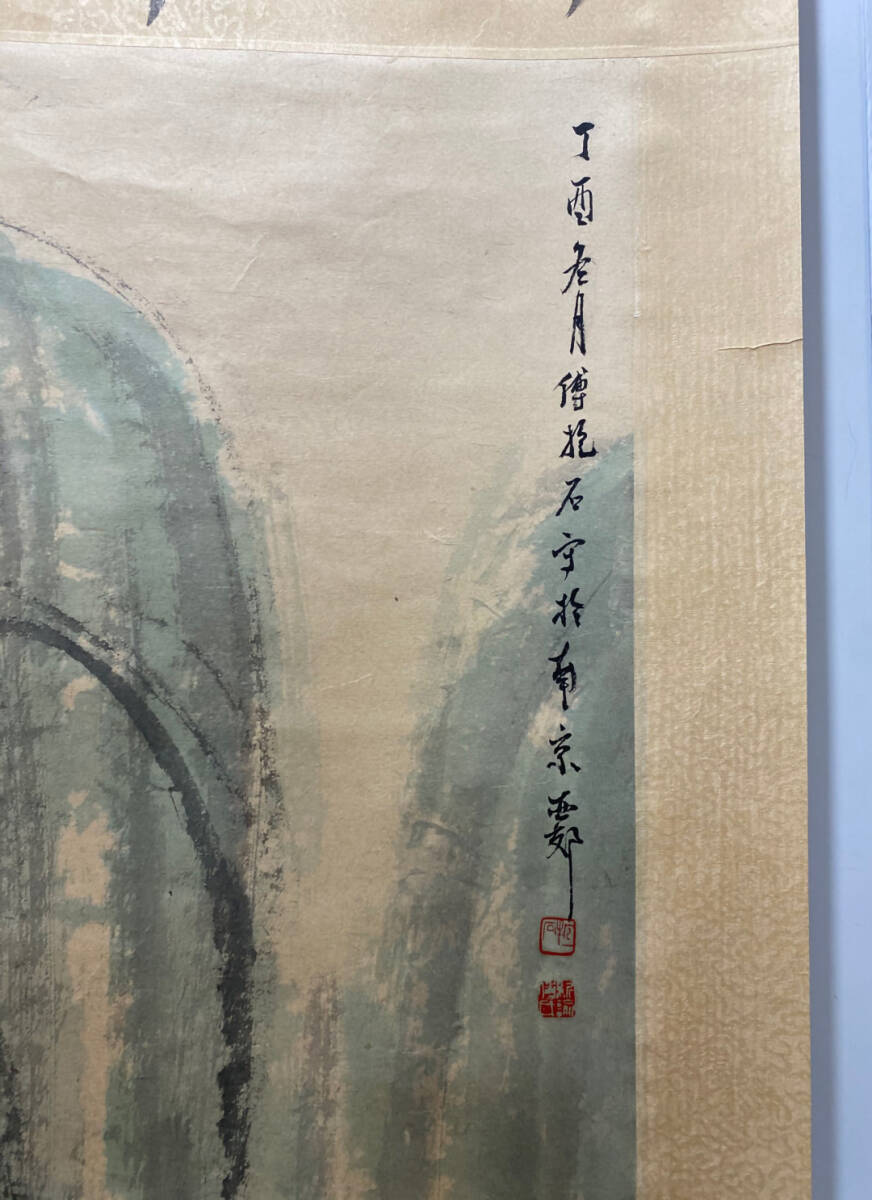 丁酉冬月傅抱石写於南京西郊
抱石